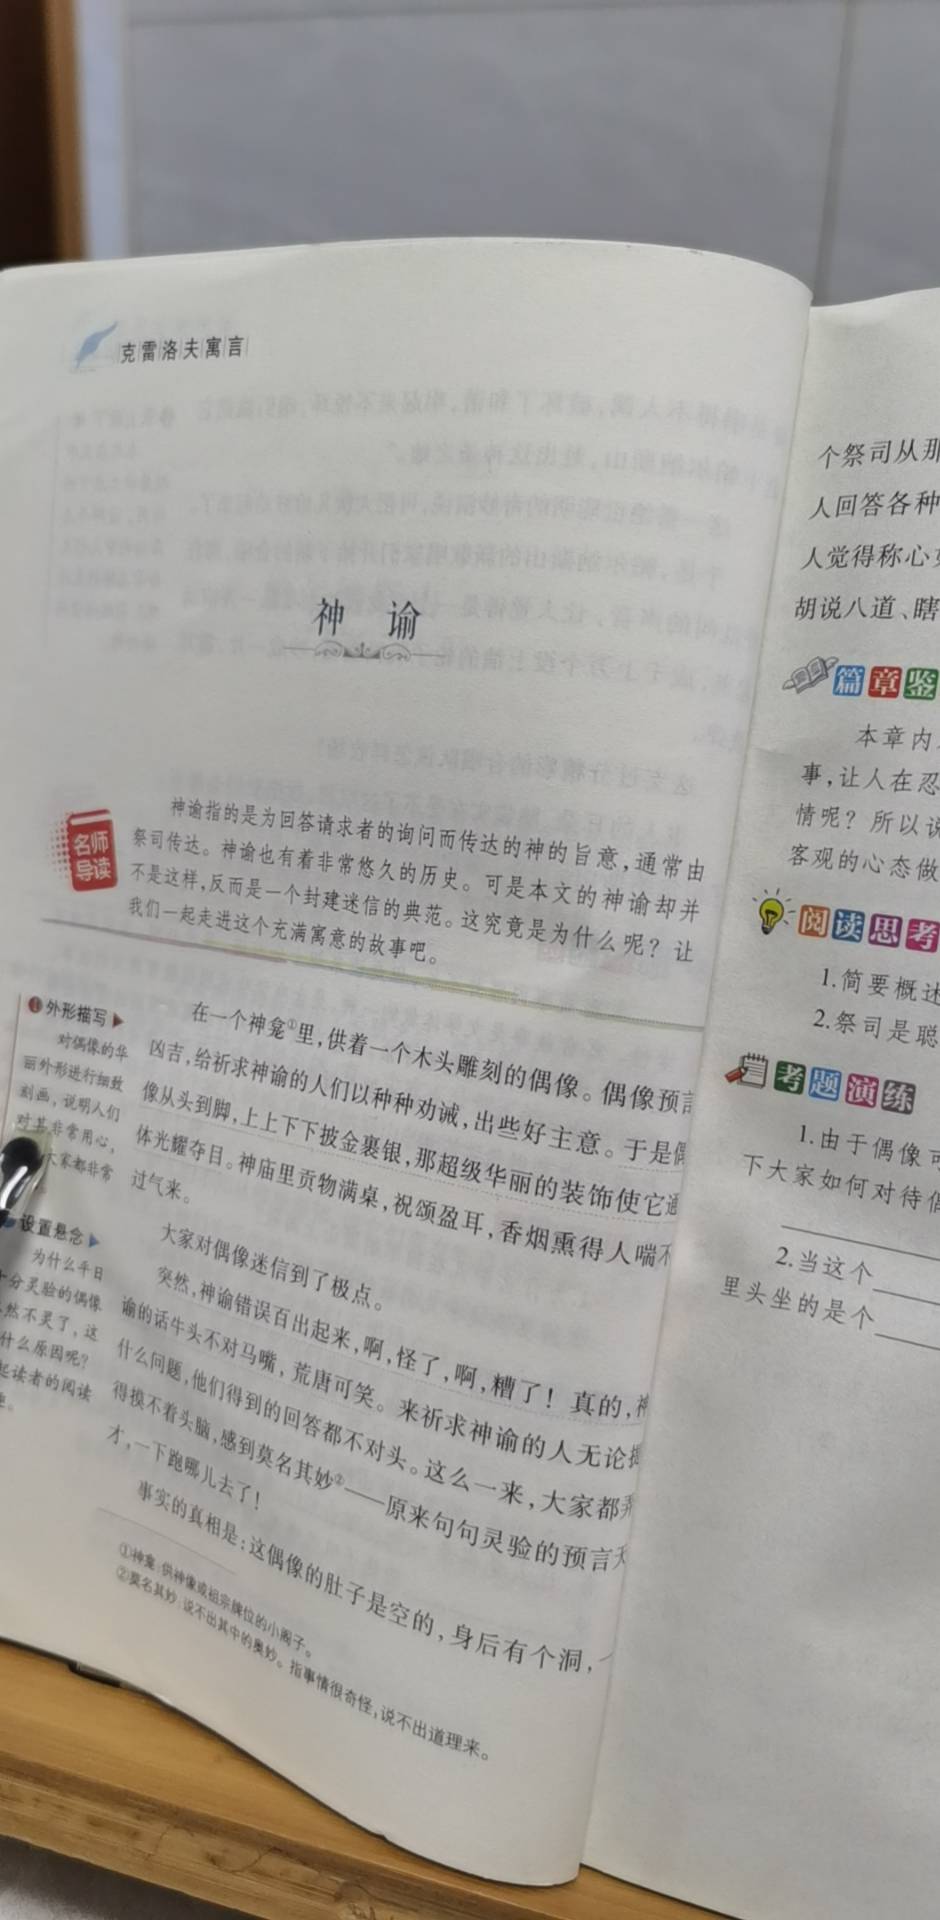 克雷洛夫寓言
神 谕
名师
导读
神谕指的是为回答请求者的询问而传达的神的旨意,通常由
祭司传达。神谕也有着非常悠久的历史。可是本文的神谕却并
不是这样,反而是一个封建迷信的典范。这究竟是为什么呢?让
我们一起走进这个充满寓意的故事吧。
❶外形描写▶
对偶像的华
丽外形进行细致
刻画,说明人们
对其非常用心,
大家都非常
设置悬念▶
为什么平日
十分灵验的偶像
然不灵了,这
什么原因呢?
起读者的阅读
在一个神龛①里,供着一个木头雕刻的偶像。偶像预言
凶吉,给祈求神谕的人们以种种劝诫,出些好主意。于是偶
像从头到脚,上上下下披金裹银,那超级华丽的装饰使它通
体光耀夺目。神庙里贡物满桌,祝颂盈耳,香烟熏得人喘不
过气来。
大家对偶像迷信到了极点。
突然,神谕错误百出起来,啊,怪了,啊,糟了!真的,神
谕的话牛头不对马嘴,荒唐可笑。来祈求神谕的人无论提
什么问题,他们得到的回答都不对头。这么一来,大家都弄
得摸不着头脑,感到莫名其妙②——原来句句灵验的预言天
才,一下跑哪儿去了!
事实的真相是:这偶像的肚子是空的,身后有个洞,
①神龛:供神像或祖宗牌位的小阁子。
②莫名其妙:说不出其中的奥妙。指事情很奇怪,说不出道理来。
个祭司从那
人回答各种
人觉得称心
胡说八道、瞎
篇章鉴
本章内
事,让人在忍
情呢?所以说
客观的心态做
阅读思考
1.简要概述
2.祭司是聪
考题演练
1.由于偶像
下大家如何对待偶
2.当这个
里头坐的是个